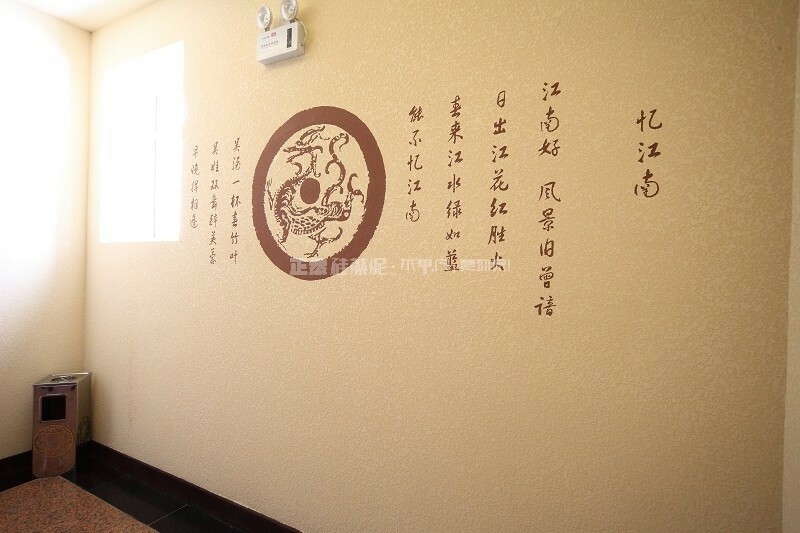 忆江南
江南好 风景旧曾谙
日出江花红胜火
春来江水绿如蓝
能不忆江南
吴酒一杯春竹叶
吴娃双舞醉芙蓉
早晚得相逢